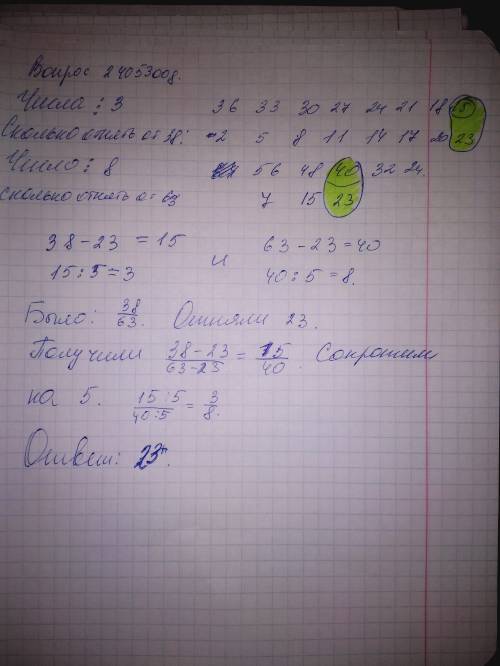 Вопрос 24053008.
Числа : 3 36 33 30 27 24 21 18 15
Сколько отнять от 38: -2 5 8 11 14 17 20 23
Число : 8 56 48 40 32 24.
Сколько отнять от 63 7 15 23
38-23 = 15 и 63-23=40
15:5=3 40:5=8.
Было: 38/63. Отняли 23.
Получили 38-23/63-23 = 15/40. Сократим
на 5. 15:5/40:5 = 3/8.
Ответ: 23.